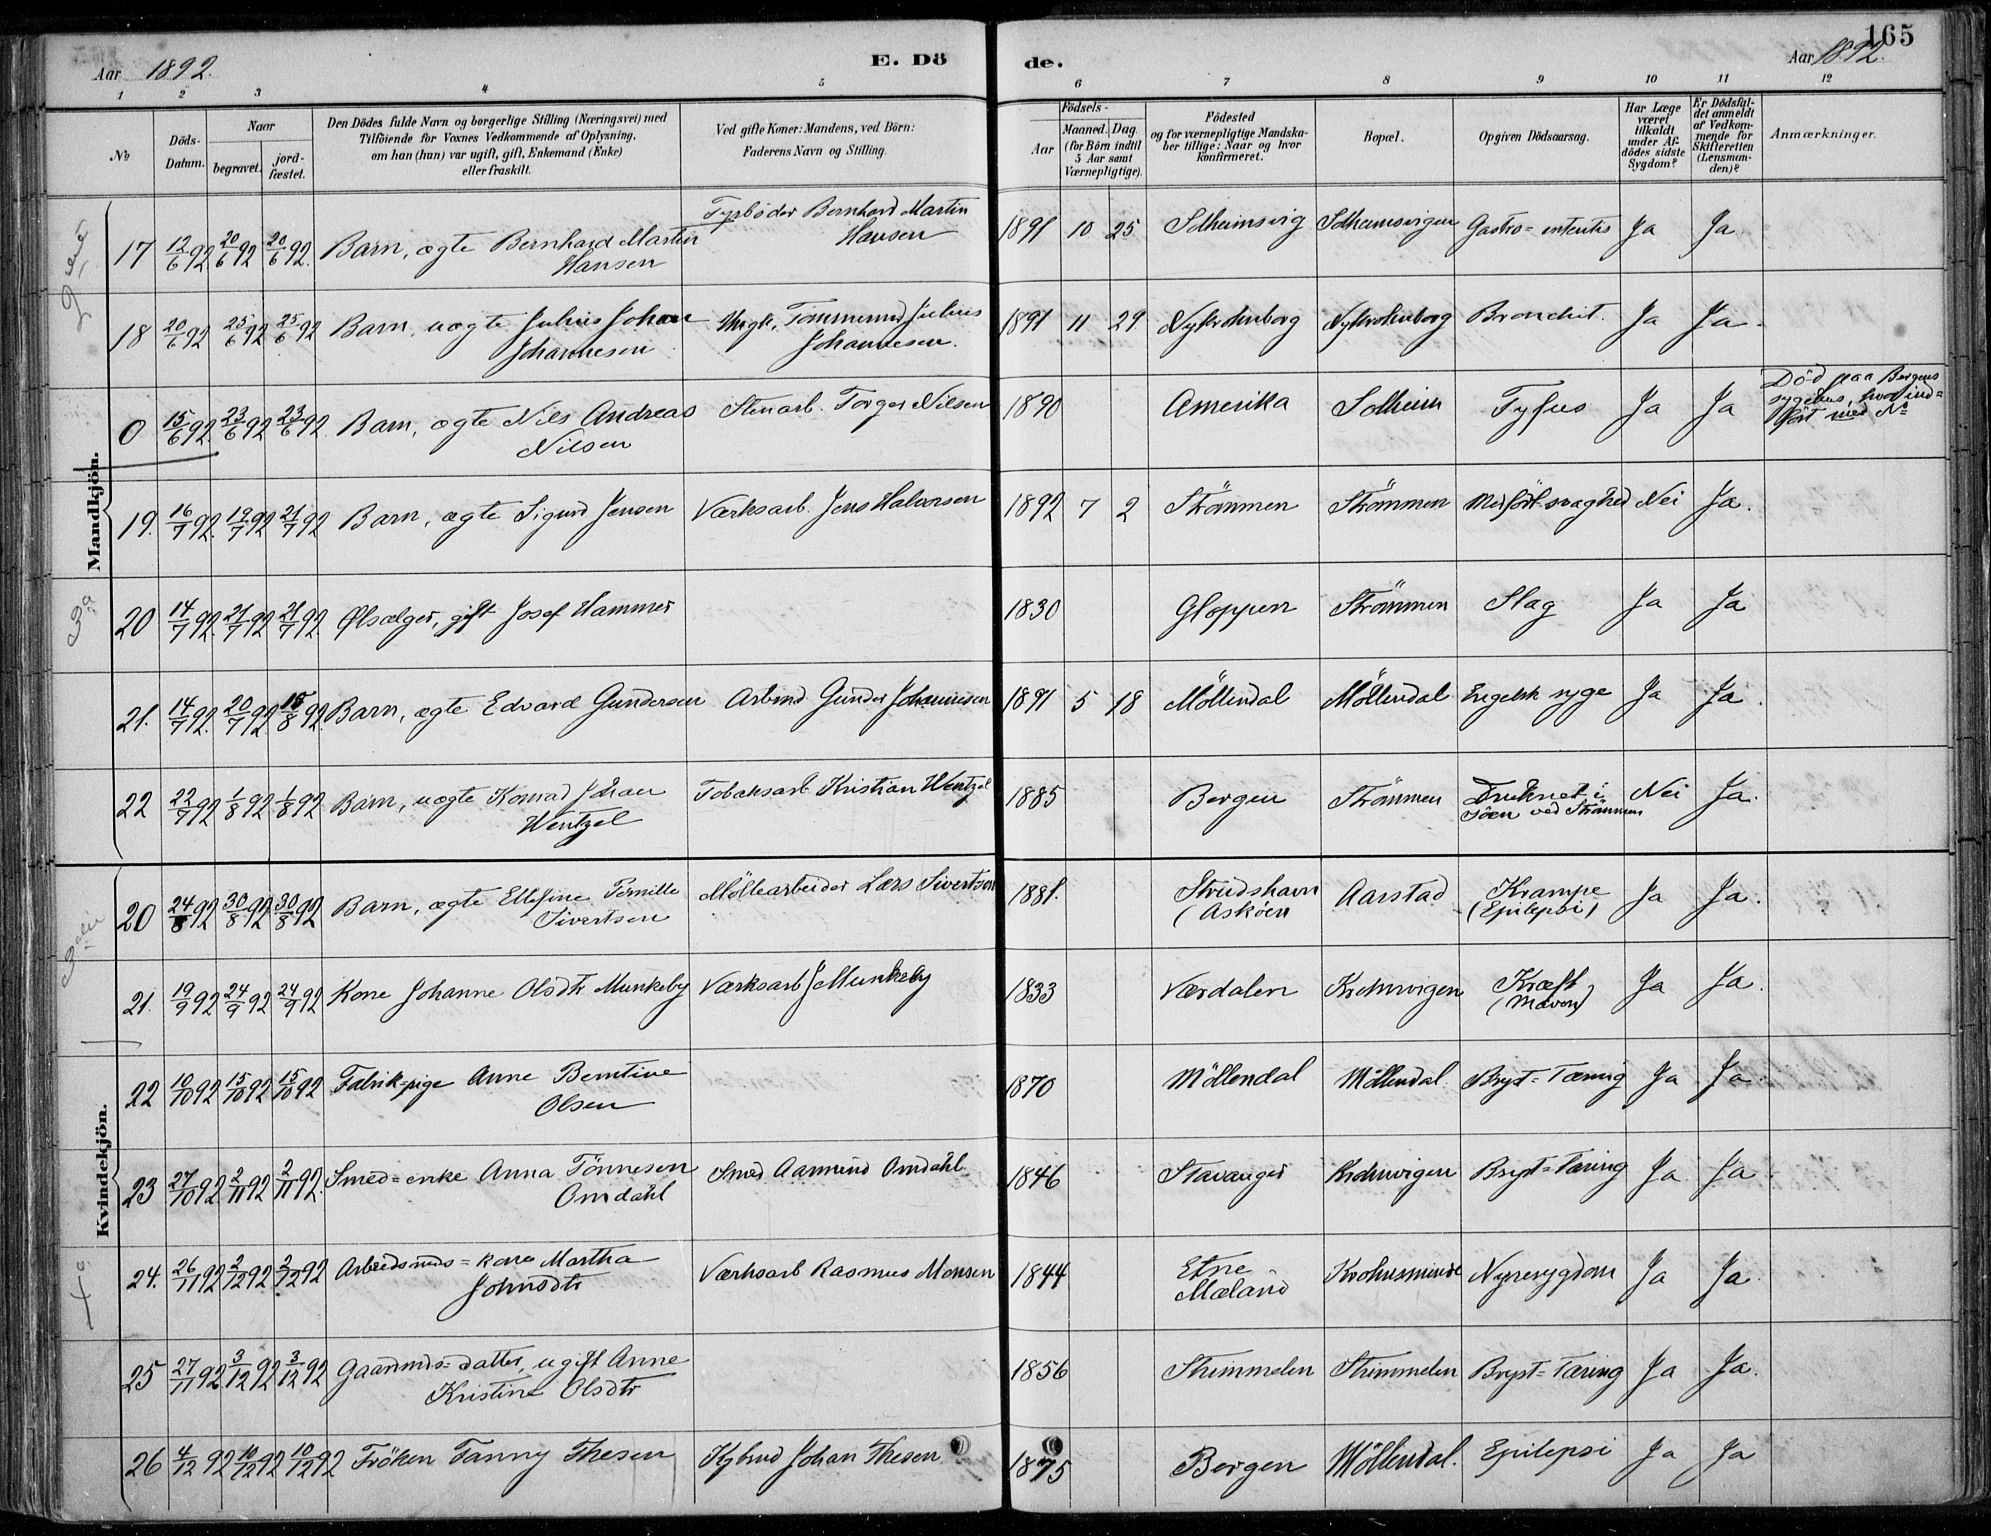 165
Aar 1892.
E. Döde.
Aar 1892.
1 2 3 4 5 6 7 8 9 10 11 12
No
Döds-Datum.
Naar
begravet.
jord-fæstet.
Den Dödes fulde Navn og borgerlige Stilling (Næringsvei) med
Tilföiende for Voxnes Vedkommende af Oplysning,
om han (hun) var ugift, gift, Enkemand (Enke)
eller fraskilt.
Ved gifte Koner: Mandens, ved Börn:
Faderens Navn og Stilling.
Födsels-
Aar
Maaned. Dag.
(for Börn indtil
5 Aar samt
Værnepligtige).
Födested
og for værnepligtige Mandska-
ber tillige: Naar og hvor
konfirmeret.
Bopæl.
Opgiven Dödsaarsag.
Har Læge
været
tilkaldt
under Af-
dödes sidste
Sygdom?
Er Dödsfal-
det anmeldt
af Vedkom-
mende for
Skifteretten
(Lensman-
den)?
Anmærkninger.
Mandkjön.
17 12/6 92 20/6 92 20/6 92. Barn, ægte Bernhard Martin Hansen Fyrböder Bernhard Martin Hansen 1891 10 25 Solheimsvig Solheimsvigen Gastro=enteritis Ja Ja
18 20/6 92 25/6 92 25/6 92 Barn, uægte Julius Johan Johannesen Ungk., Tömmermd Julius Johannesen. 1891 11 29 Nykrohnborg Nykrohnborg Bronchit. Ja Ja.
0 15/6 92 23/6 92 23/6 92 Barn, ægte Nils Andreas Nilsen Stenarb. Torger Nilsen 1890 Amerika Solheim Tyfus Ja Ja Död paa Bergens sygehus, hvor ind=fört med No
19. 16/7 92. 19/7 92 21/7 92 Barn, ægte Sigurd Jensen Værksarb. Jens Halvorsen 1892 7 2 Strömmen Strömmen Medfört svaghed Nei Ja.
20 14/7 92. 21/7 92 21/7 92. Ølsælger, gift Josef Hammer 1830 Gloppen Strömmen Slag Ja Ja
21. 14/7 92. 20/7 92. 15/8 92. Barn, ægte Edvard Gundersen Arbmd Gunder Johannesen 1891 5 18 Möllendal Möllendal Engelsk syge Ja Ja.
22 22/7 92 1/8 92 1/8 92 Barn, uægte Konrad Johan Wentzel Tobaksarb Kristian Wentzel 1885 Bergen Strömmen Druknet i söen ved Strömmen Nei Ja.
Kvindekjön.
20 24/8 92 30/8 92 30/8 92 Barn, ægte Ellefine Pernille Sivertsen Möllearbeider Lars Sivertsen 1881. Strudshavn (Asköen Aarstad Krampe (Epilepsi) Ja Ja.
21. 19/9 92 24/9 92 24/9 92 Kone Johanne Olsdtr Munkeby Værksarb J Munkeby 1833 Værdalen Krohnvigen Kræft (Maven) Ja Ja.
22 10/10 92 15/10 92 15/10 92 Fabrik=pige Anne Berntine Olsen 1870 Möllendal Möllendal. Bryst=Tæring Ja Ja.
23 27/10 92 2/11 92 2/11 92. Smed=enke Anna Tönnesen Omdahl Smed Aamund Omdahl 1846 Stavanger Krohnvigen Bryst=Tæring Ja Ja
24. 26/11 92 2/12 92 2/12 92 Arbeidsmds=kone Martha Johnsdtr Værksarb Rasmus Monsen 1844 Etne Mæland Krohnsminde Nyresygdom Ja Ja
25 27/11 92 3/12 92 3/12 92 Gaardmds=datter, ugift Anne Kristine Olsdtr 1856 Strimmelen Strimmelen Bryst=Tæring Ja Ja.
26 4/12 92 10/12 92 10/12 92 Fröken Fanny Thesen Kjbmd Johan Thesen 1875 Bergen Möllendal. Epilepsi Ja Ja